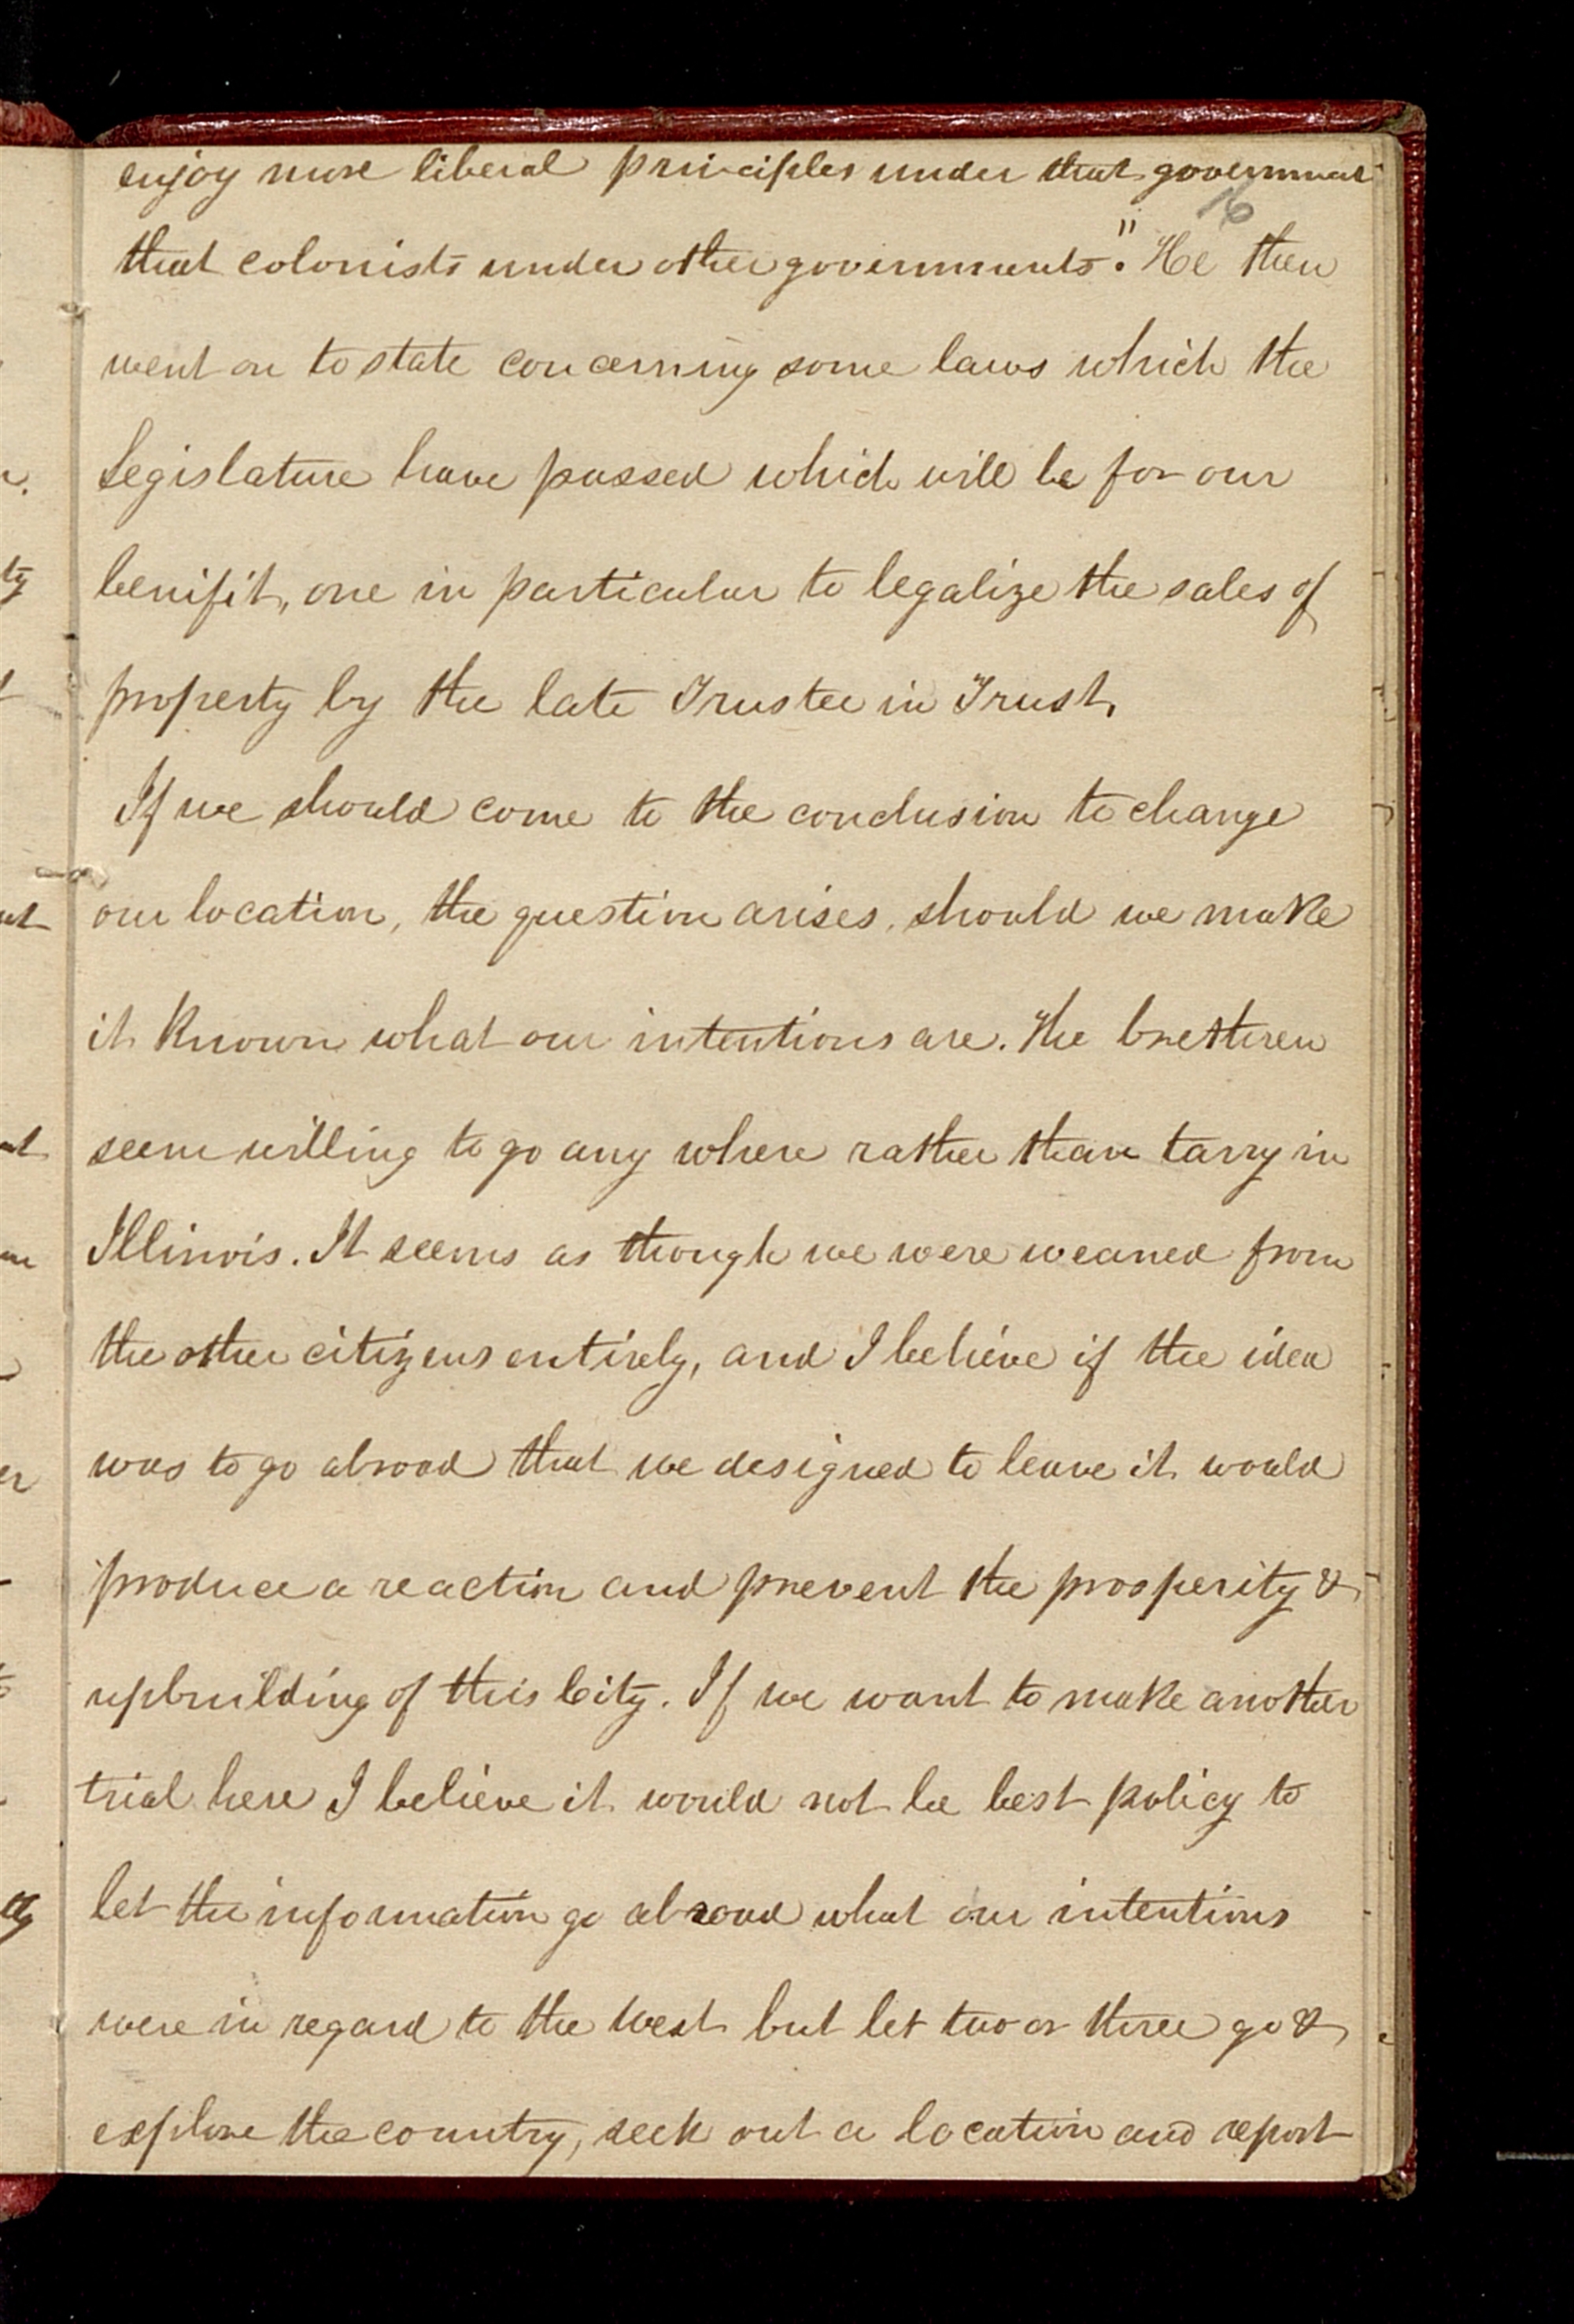 enjoy more liberal principles under that government
16
that colonists under other governments." He then
went on to state concerning some laws which the
Legislature have passed which will be for our
benifit, one in particular to legalize the sales of
property by the late Trustee in Trust.
If we should come to the conclusion to change
our location, the question arises, should we make
it known what our intentions are. The brethren
seem willing to go any where rather than tarry in
Illinois. It seems as though we were weaned from
the other citizens entirely, and I believe if the idea
was to go abroad that we designed to leave it would
produce a reaction and prevent the prosperity &
upbuilding of this City. If we want to make another
trial here I believe it would not be best policy to
let the information go abroad what our intentions
were in regard to the West but let two or three go &
explore the country, seek out a location and report